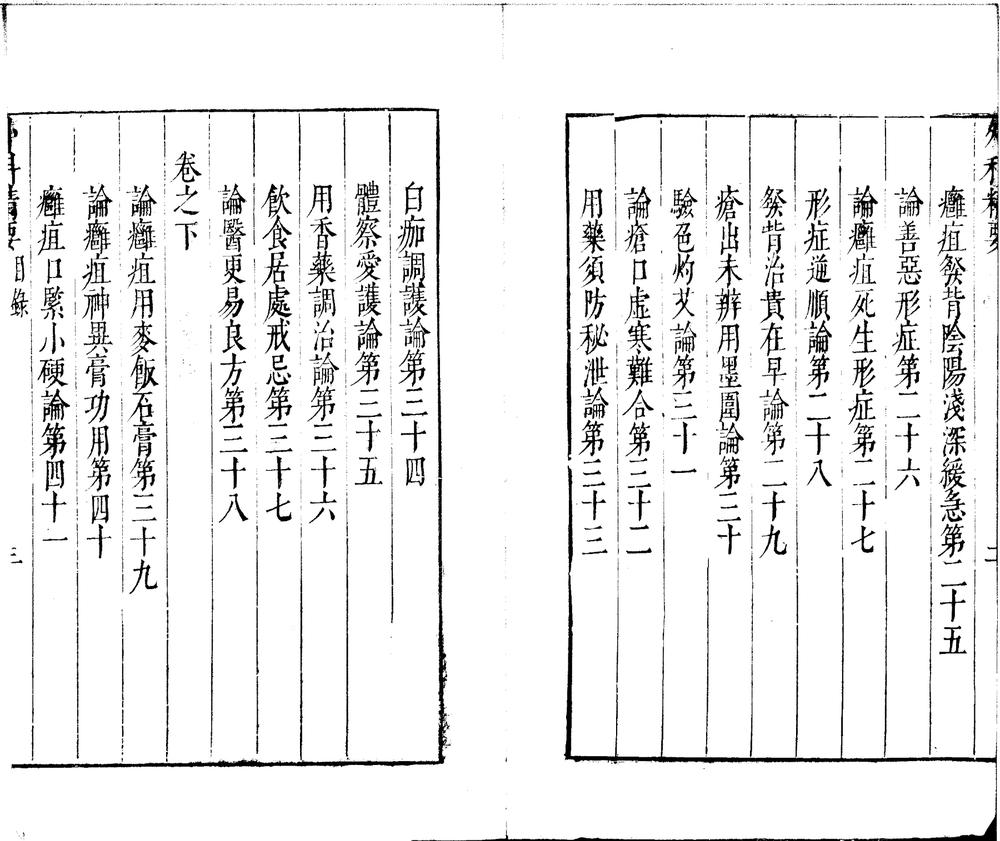 外科精要
二
癰疽發背陰陽淺深緩急第二十五
論善惡形症第二十六
論癰疽死生形症第二十七
形症逆順論第二十八
發背治貴在早論第二十九
瘡出未辨用墨圍論第三十
驗色灼艾論第三十一
論瘡口虛寒難合第三十二
用藥須防秘泄論第三十三
白痂調護論第三十四
體察愛護論第三十五
用香藥調治論第三十六
飲食居處戒忌第三十七
論醫更易良方第三十八
卷之下
論癰疽用麥飯石膏第三十九
論癰疽神異膏功用第四十
癰疽口緊小硬論第四十一
外科精要 目錄
三